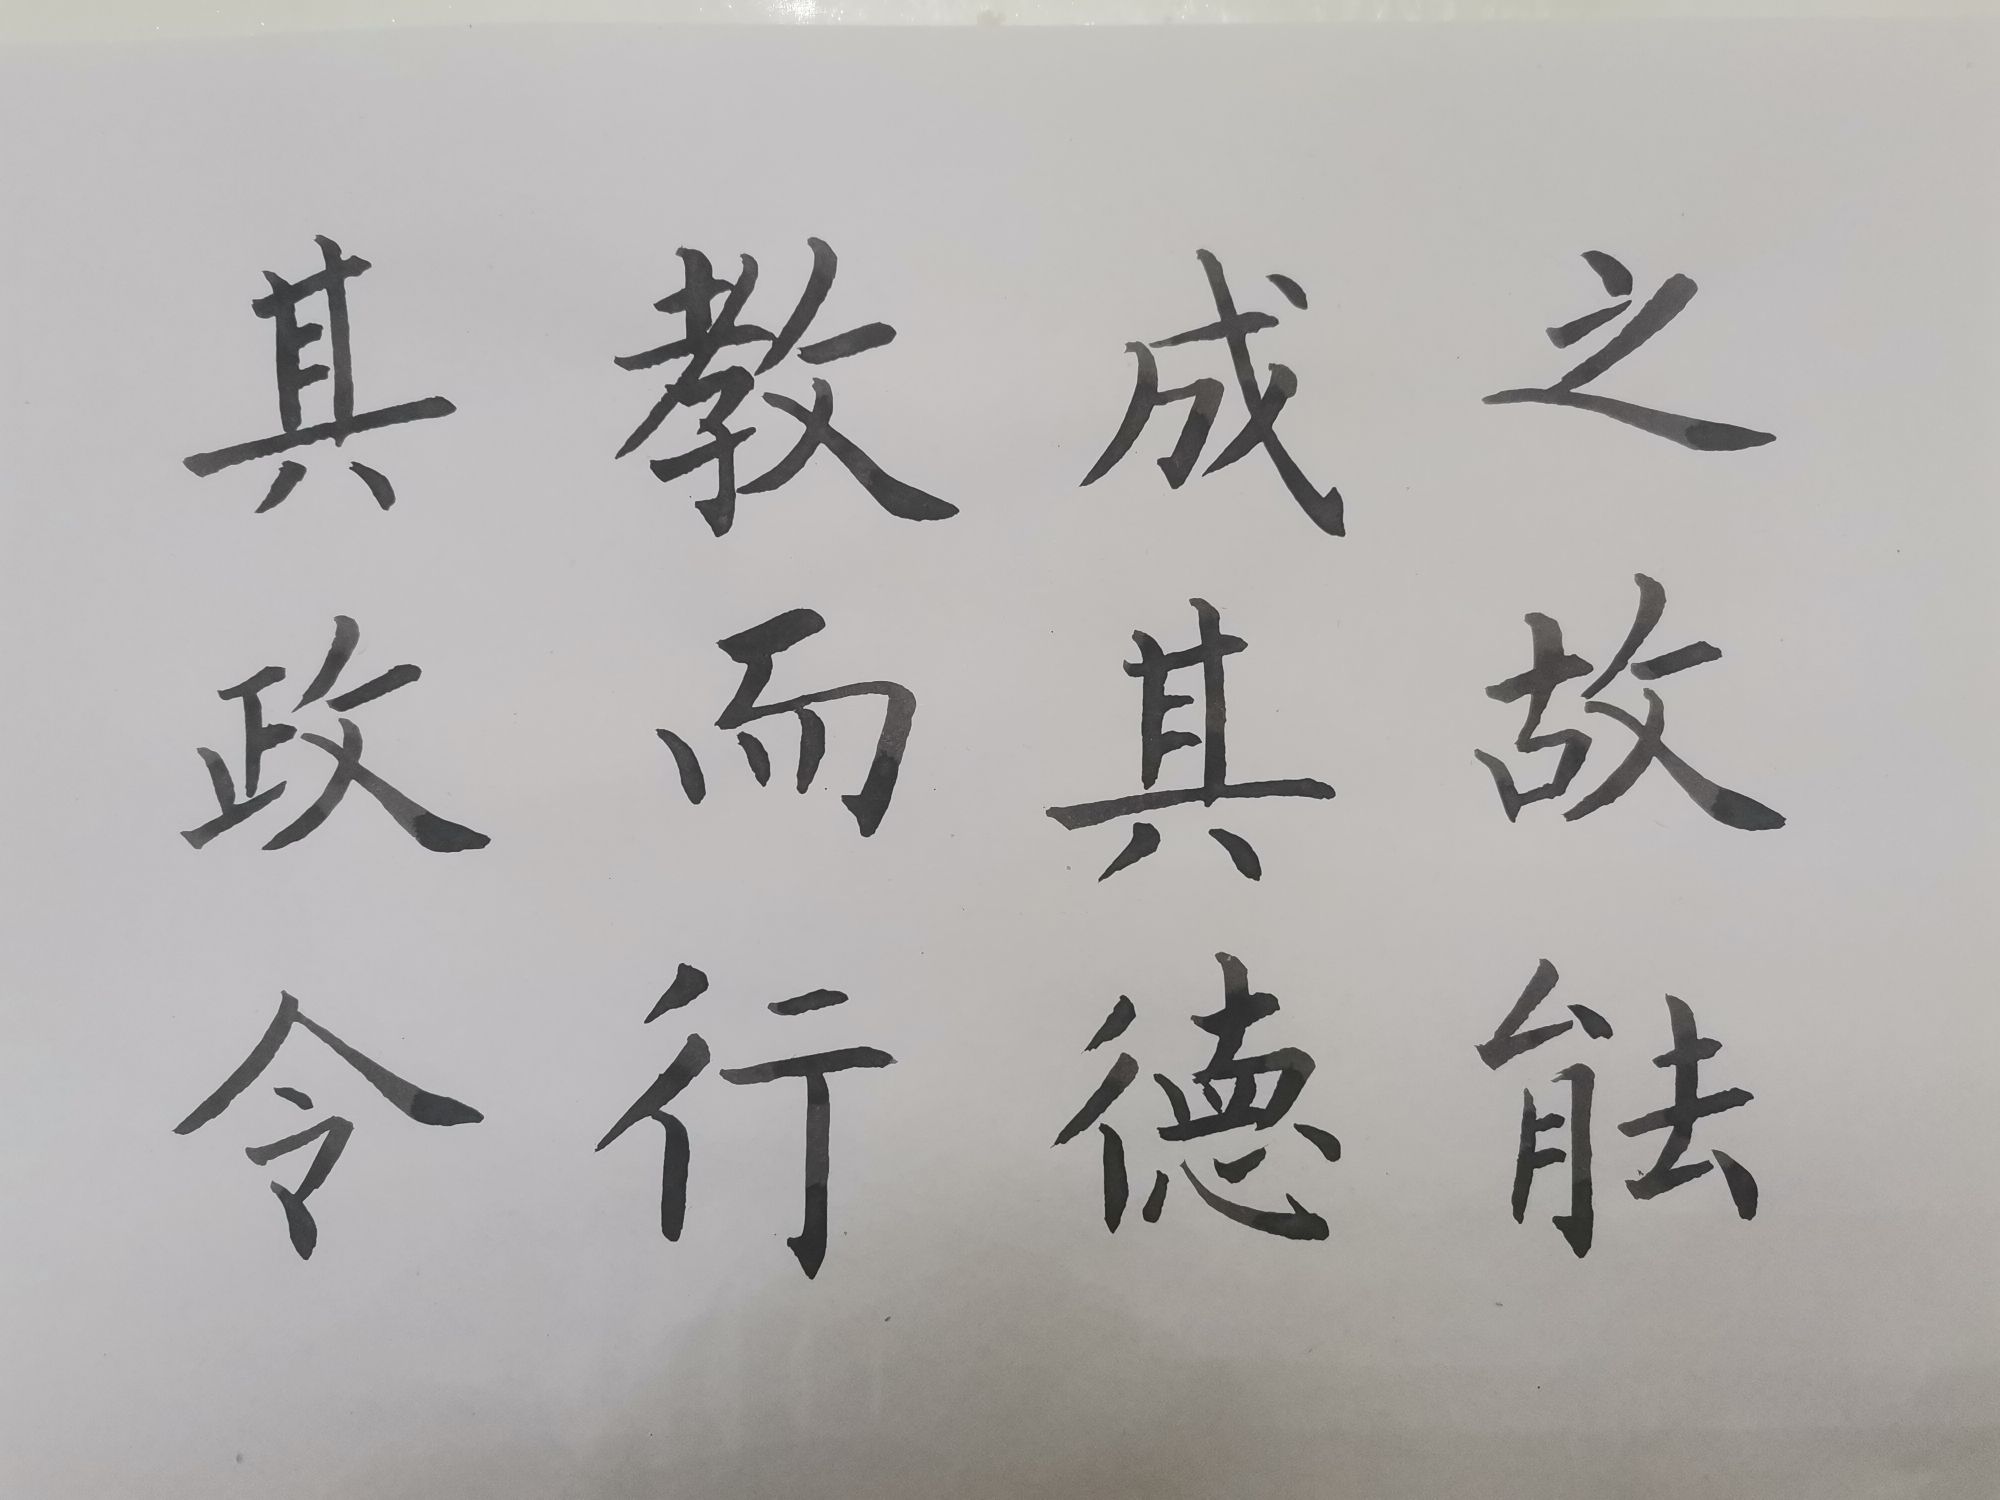 之故能
成其德
教而行
其政令